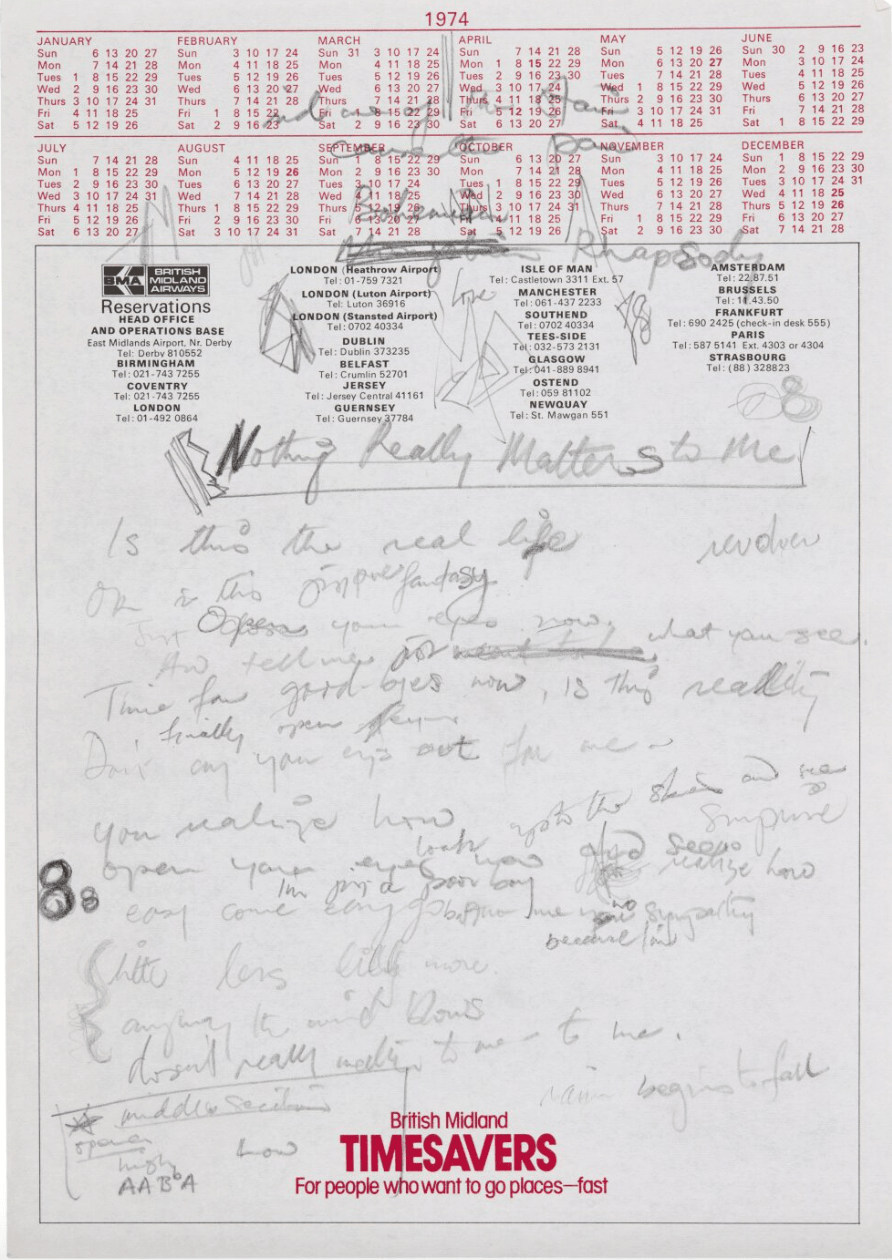 1974
JANUARY FEBRUARY MARCH APRIL MAY JUNE
Sun 6 13 20 27 Sun 3 10 17 24 Sun 31 3 10 17 24 Sun 7 14 21 28 Sun 5 12 19 26 Sun 30 2 9 16 23
Mon 7 14 21 28 Mon 4 11 18 25 Mon 4 11 18 25 Mon 1 8 15 22 29 Mon 6 13 20 27 Mon 3 10 17 24
Tues 1 8 15 22 29 Tues 5 12 19 26 Tues 5 12 19 26 Tues 2 9 16 23 30 Tues 7 14 21 28 Tues 4 11 18 25
Wed 2 9 16 23 30 Wed 6 13 20 27 Wed 6 13 20 27 Wed 3 10 17 24 Wed 1 8 15 22 29 Wed 5 12 19 26
Thurs 3 10 17 24 31 Thurs 7 14 21 28 Thurs 7 14 21 28 Thurs 4 11 18 25 Thurs 2 9 16 23 30 Thurs 6 13 20 27
Fri 4 11 18 25 Fri 1 8 15 22 Fri 1 8 15 22 29 Fri 5 12 19 26 Fri 3 10 17 24 31 Fri 7 14 21 28
Sat 5 12 19 26 Sat 2 9 16 23 Sat 2 9 16 23 30 Sat 6 13 20 27 Sat 4 11 18 25 Sat 1 8 15 22 29
JULY AUGUST SEPTEMBER OCTOBER NOVEMBER DECEMBER
Sun 7 14 21 28 Sun 4 11 18 25 Sun 1 8 15 22 29 Sun 6 13 20 27 Sun 3 10 17 24 Sun 1 8 15 22 29
Mon 1 8 15 22 29 Mon 5 12 19 26 Mon 2 9 16 23 30 Mon 7 14 21 28 Mon 4 11 18 25 Mon 2 9 16 23 30
Tues 2 9 16 23 30 Tues 6 13 20 27 Tues 3 10 17 24 Tues 1 8 15 22 29 Tues 5 12 19 26 Tues 3 10 17 24 31
Wed 3 10 17 24 31 Wed 7 14 21 28 Wed 4 11 18 25 Wed 2 9 16 23 30 Wed 6 13 20 27 Wed 4 11 18 25
Thurs 4 11 18 25 Thurs 1 8 15 22 29 Thurs 5 12 19 26 Thurs 3 10 17 24 31 Thurs 7 14 21 28 Thurs 5 12 19 26
Fri 5 12 19 26 Fri 2 9 16 23 30 Fri 6 13 20 27 Fri 4 11 18 25 Fri 1 8 15 22 29 Fri 6 13 20 27
Sat 6 13 20 27 Sat 3 10 17 24 31 Sat 7 14 21 28 Sat 5 12 19 26 Sat 2 9 16 23 30 Sat 7 14 21 28
Bohemian
Rhapsody
BMA BRITISH MIDLAND AIRWAYS
Reservations
HEAD OFFICE
AND OPERATIONS BASE
East Midlands Airport, Nr. Derby
Tel: Derby 810552
BIRMINGHAM
Tel: 021-743 7255
COVENTRY
Tel: 021-743 7255
LONDON
Tel: 01-492 0864
LONDON (Heathrow Airport)
Tel: 01-759 7321
LONDON (Luton Airport)
Tel: Luton 36916
LONDON (Stansted Airport)
Tel: 0702 40334
DUBLIN
Tel: Dublin 373235
BELFAST
Tel: Crumlin 52701
JERSEY
Tel: Jersey Central 41161
GUERNSEY
Tel: Guernsey 37784
Love
ISLE OF MAN
Tel: Castletown 3311 Ext. 57
MANCHESTER
Tel: 061-437 2233
SOUTHEND
Tel: 0702 40334
TEES-SIDE
Tel: 032-573 2131
GLASGOW
Tel: 041-889 8941
OSTEND
Tel: 059 81102
NEWQUAY
Tel: St. Mawgan 551
AMSTERDAM
Tel: 22.87.51
BRUSSELS
Tel: 11.43.50
FRANKFURT
Tel: 690 2425 (check-in desk 555)
PARIS
Tel: 587 5141 Ext. 4303 or 4304
STRASBOURG
Tel: (88) 328823
8
Nothing Really Matters to Me
Is this the real life revolver
Or is this just pure fantasy
Just Open your eyes now, what you see.
And tell me
Time for good-byes now, is this reality
finally open
Don't cry your eyes out for me
up to the skies and see
you realize how Surprise
look
open your eyes now and see realize how
I'm just a poor boy
88 easy come easy go no sympathy
because I'm
little less little more.
anyway the wind blows
doesn't really matter to me - to me.
rain begins to fall
middle section
opera
how
high
AABA
British Midland
TIMESAVERS
For people who want to go places—fast